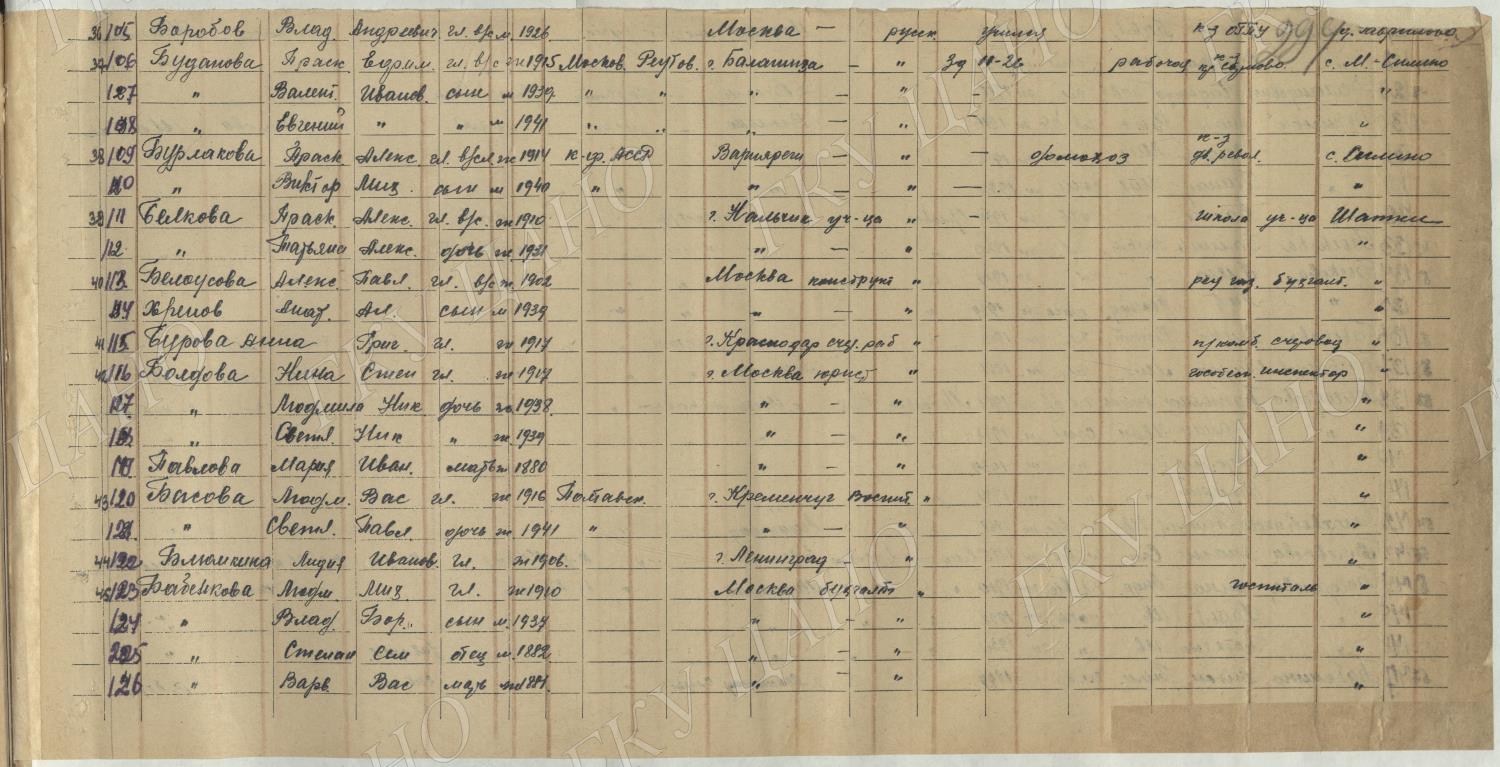 36/105 Боробов Влад Андреевич гл. в/с м. 1926 Москва — русск. учился к-з ОГПУ
37/106 Буданова Праск. Ефрим. гл. в/с ж 1915 Москов. Реутов. г. Балашиха — " рабочая с. М.-Силино
" Валент. Иванов. сын м 1939 " " " — " — "
" Евгений " " м 1941 " " " — " — "
38/109 Бурлакова Праск. Алекс гл. в/сл ж 1914 АССР — " — к-з с. Силино
" Виктор Мих. сын м 1940 " " " — " — "
39/11 Белкова Праск. Алекс. гл. в/с. ж 1910 г. Нальчик уч-ца " школа уч-ца Шатки
/12 " Татьяна Алекс. дочь ж 1931 " — " "
40/13 Белоусова Алекс. Павл. гл. в/с ж 1902 Москва конструкт " бухгалт. "
Хренов Анат. Ал. сын м 1939 " — " "
41/15 Бурова Анна Григ. гл. ж 1917 г. Краснодар счет. раб " счетовод "
42/116 Болдова Нина Степ гл. ж 1917 г. Москва юрист " инспектор "
" Людмила Ник дочь ж 1938 " — " "
" Светл. Ник " ж 1939 " — " "
Павлова Мария Иван. мать ж 1880 " — " "
43/120 Басова Людм. Вас гл. ж 1916 Полтавск. г. Кременчуг Воспит. " "
121 " Светл. Павл дочь ж 1941 " " — " "
44/122 Блюмкина Лидия Иванов. гл. ж 1906. г. Ленинград — " "
45/123 Бабенкова Людм. Мих. гл. ж 1910 Москва бухгалт " госпиталь "
124 " Влад. Бор. сын м. 1937 " — " "
" Степан Сем отец м. 1882 " — " "
126 " Варв. Вас мать ж 1881. " — " "
ГКУ ЦАНО